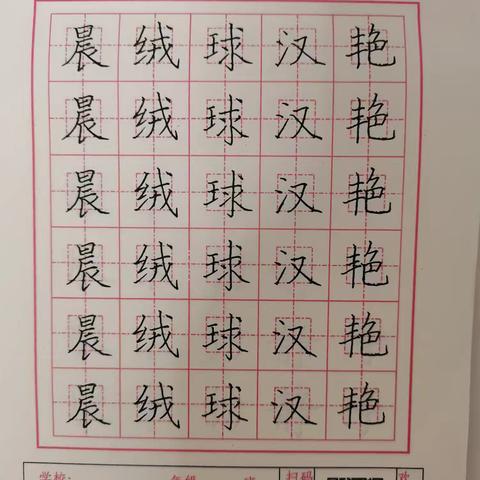 晨绒球汉艳
晨绒球汉艳
晨绒球汉艳
晨绒球汉艳
晨绒球汉艳
晨绒球汉艳
学校: 年级 班 扫码 欢